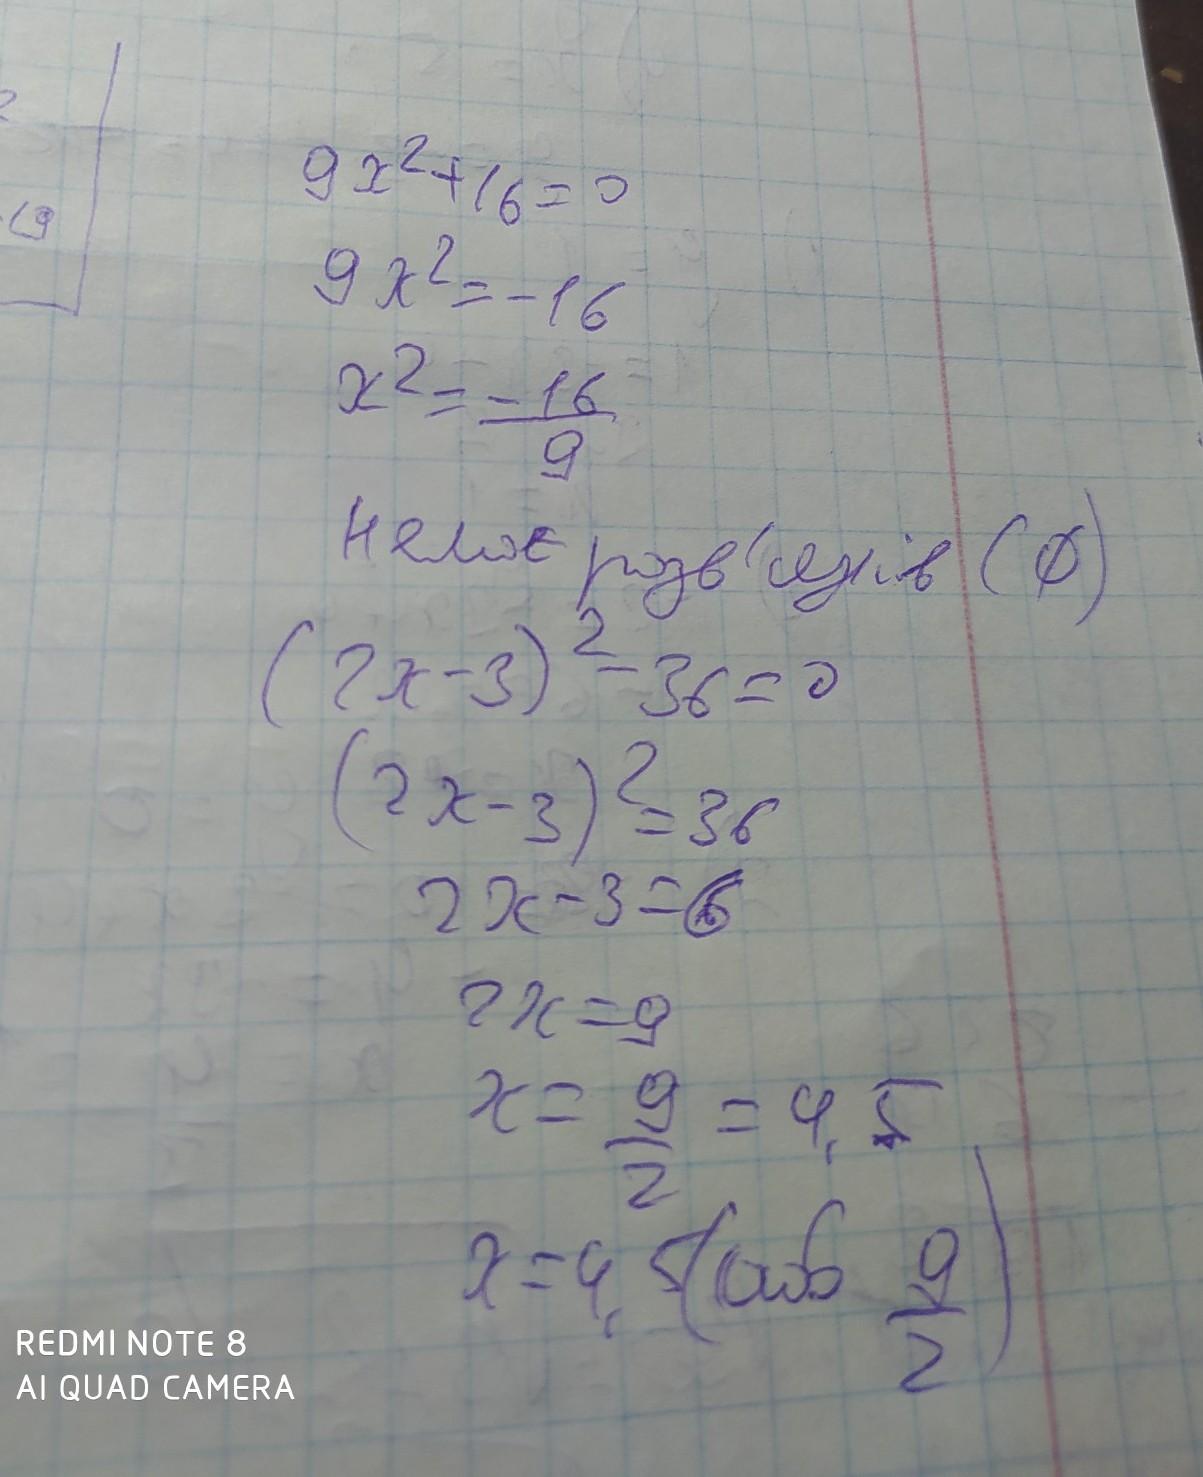 2
19
9x²+16=0
9x²=-16
x²=-16/9
Немає розв'язків (Ø)
(2x-3)²-36=0
(2x-3)²=36
2x-3=6
2x=9
x=9/2=4,5
x=4,5(або 9/2)
REDMI NOTE 8
AI QUAD CAMERA